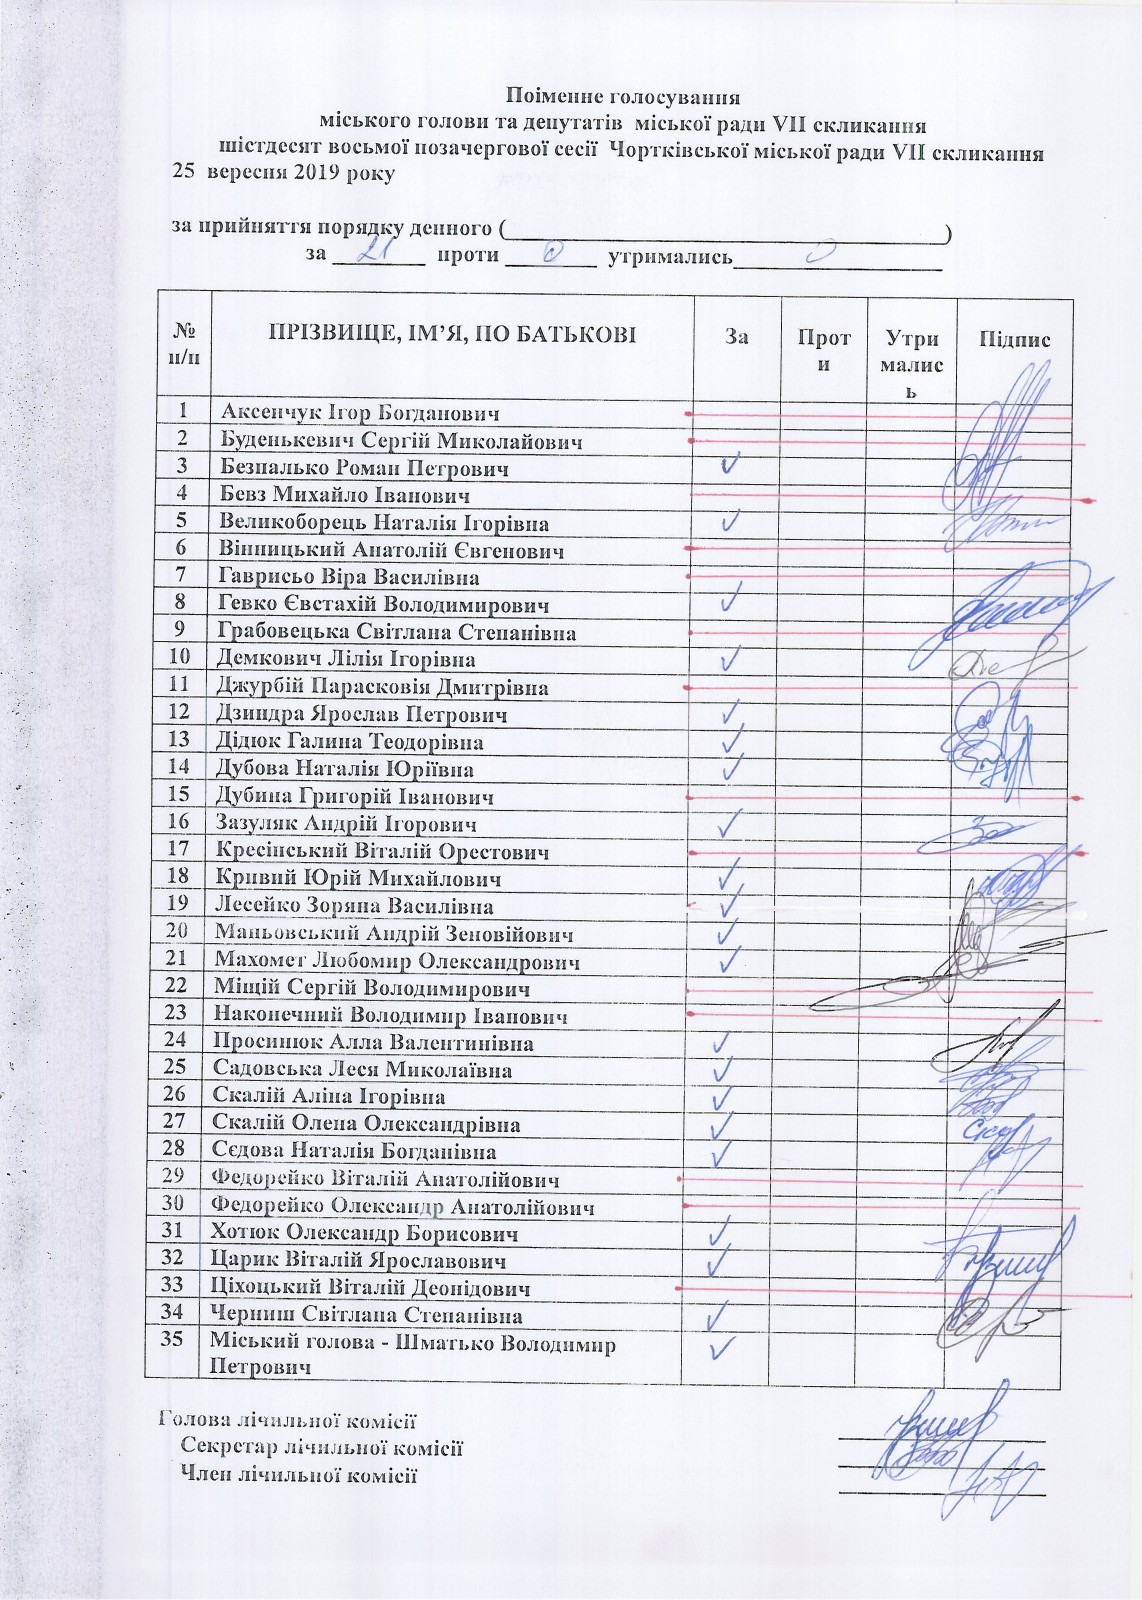 Поіменне голосування
міського голови та депутатів міської ради VII скликання
шістдесят восьмої позачергової сесії Чортківської міської ради VII скликання
25 вересня 2019 року
за прийняття порядку денного (____________________)
за 21 проти 0 утримались 0
№ п/п ПРІЗВИЩЕ, ІМ’Я, ПО БАТЬКОВІ За Проти Утримались Підпис
1 Аксенчук Ігор Богданович
2 Буденькевич Сергій Миколайович
3 Безпалько Роман Петрович ✓
4 Бевз Михайло Іванович
5 Великоборець Наталія Ігорівна ✓
6 Вінницький Анатолій Євгенович
7 Гаврисьо Віра Василівна
8 Гевко Євстахій Володимирович ✓
9 Грабовецька Світлана Степанівна
10 Демкович Лілія Ігорівна ✓
11 Джурбій Парасковія Дмитрівна
12 Дзиндра Ярослав Петрович ✓
13 Дідюк Галина Теодорівна ✓
14 Дубова Наталія Юріївна ✓
15 Дубина Григорій Іванович
16 Зазуляк Андрій Ігорович ✓
17 Кресінський Віталій Орестович
18 Кривий Юрій Михайлович ✓
19 Лесейко Зоряна Василівна ✓
20 Маньовський Андрій Зеновійович ✓
21 Махомет Любомир Олександрович ✓
22 Міщій Сергій Володимирович
23 Наконечний Володимир Іванович
24 Просинюк Алла Валентинівна ✓
25 Садовська Леся Миколаївна ✓
26 Скалій Аліна Ігорівна ✓
27 Скалій Олена Олександрівна ✓
28 Сєдова Наталія Богданівна ✓
29 Федорейко Віталій Анатолійович
30 Федорейко Олександр Анатолійович
31 Хотюк Олександр Борисович ✓
32 Царик Віталій Ярославович ✓
33 Ціхоцький Віталій Деонідович
34 Черниш Світлана Степанівна ✓
35 Міський голова - Шматько Володимир ✓
Петрович
Голова лічильної комісії
Секретар лічильної комісії
Член лічильної комісії